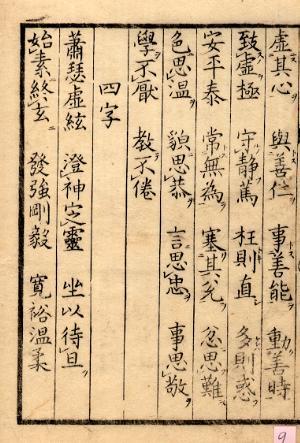 虚其心 與善仁 事善能 動善時
致虚極 守静篤 枉則直 多則惑
安平泰 常無為 塞其兌 忿思難
色思温 貌思恭 言思忠 事思敬
學不厭 教不倦
四字
蕭瑟虚絃 澄神定靈 坐以待旦
始素終玄 發強剛毅 寛裕温柔
9